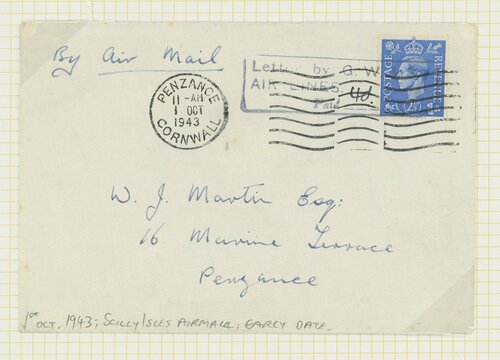 By Air Mail
Letter by G. W.
AIR LINES.
Paid 4d.
POSTAGE
REVENUE
2½
PENZANCE
11 - AM
1 OCT
1943
CORNWALL
W. J. Martin Esq:
16 Marine Terrace
Penzance
1st OCT. 1943; SCILLY ISLES AIRMAIL; EARLY DATE.